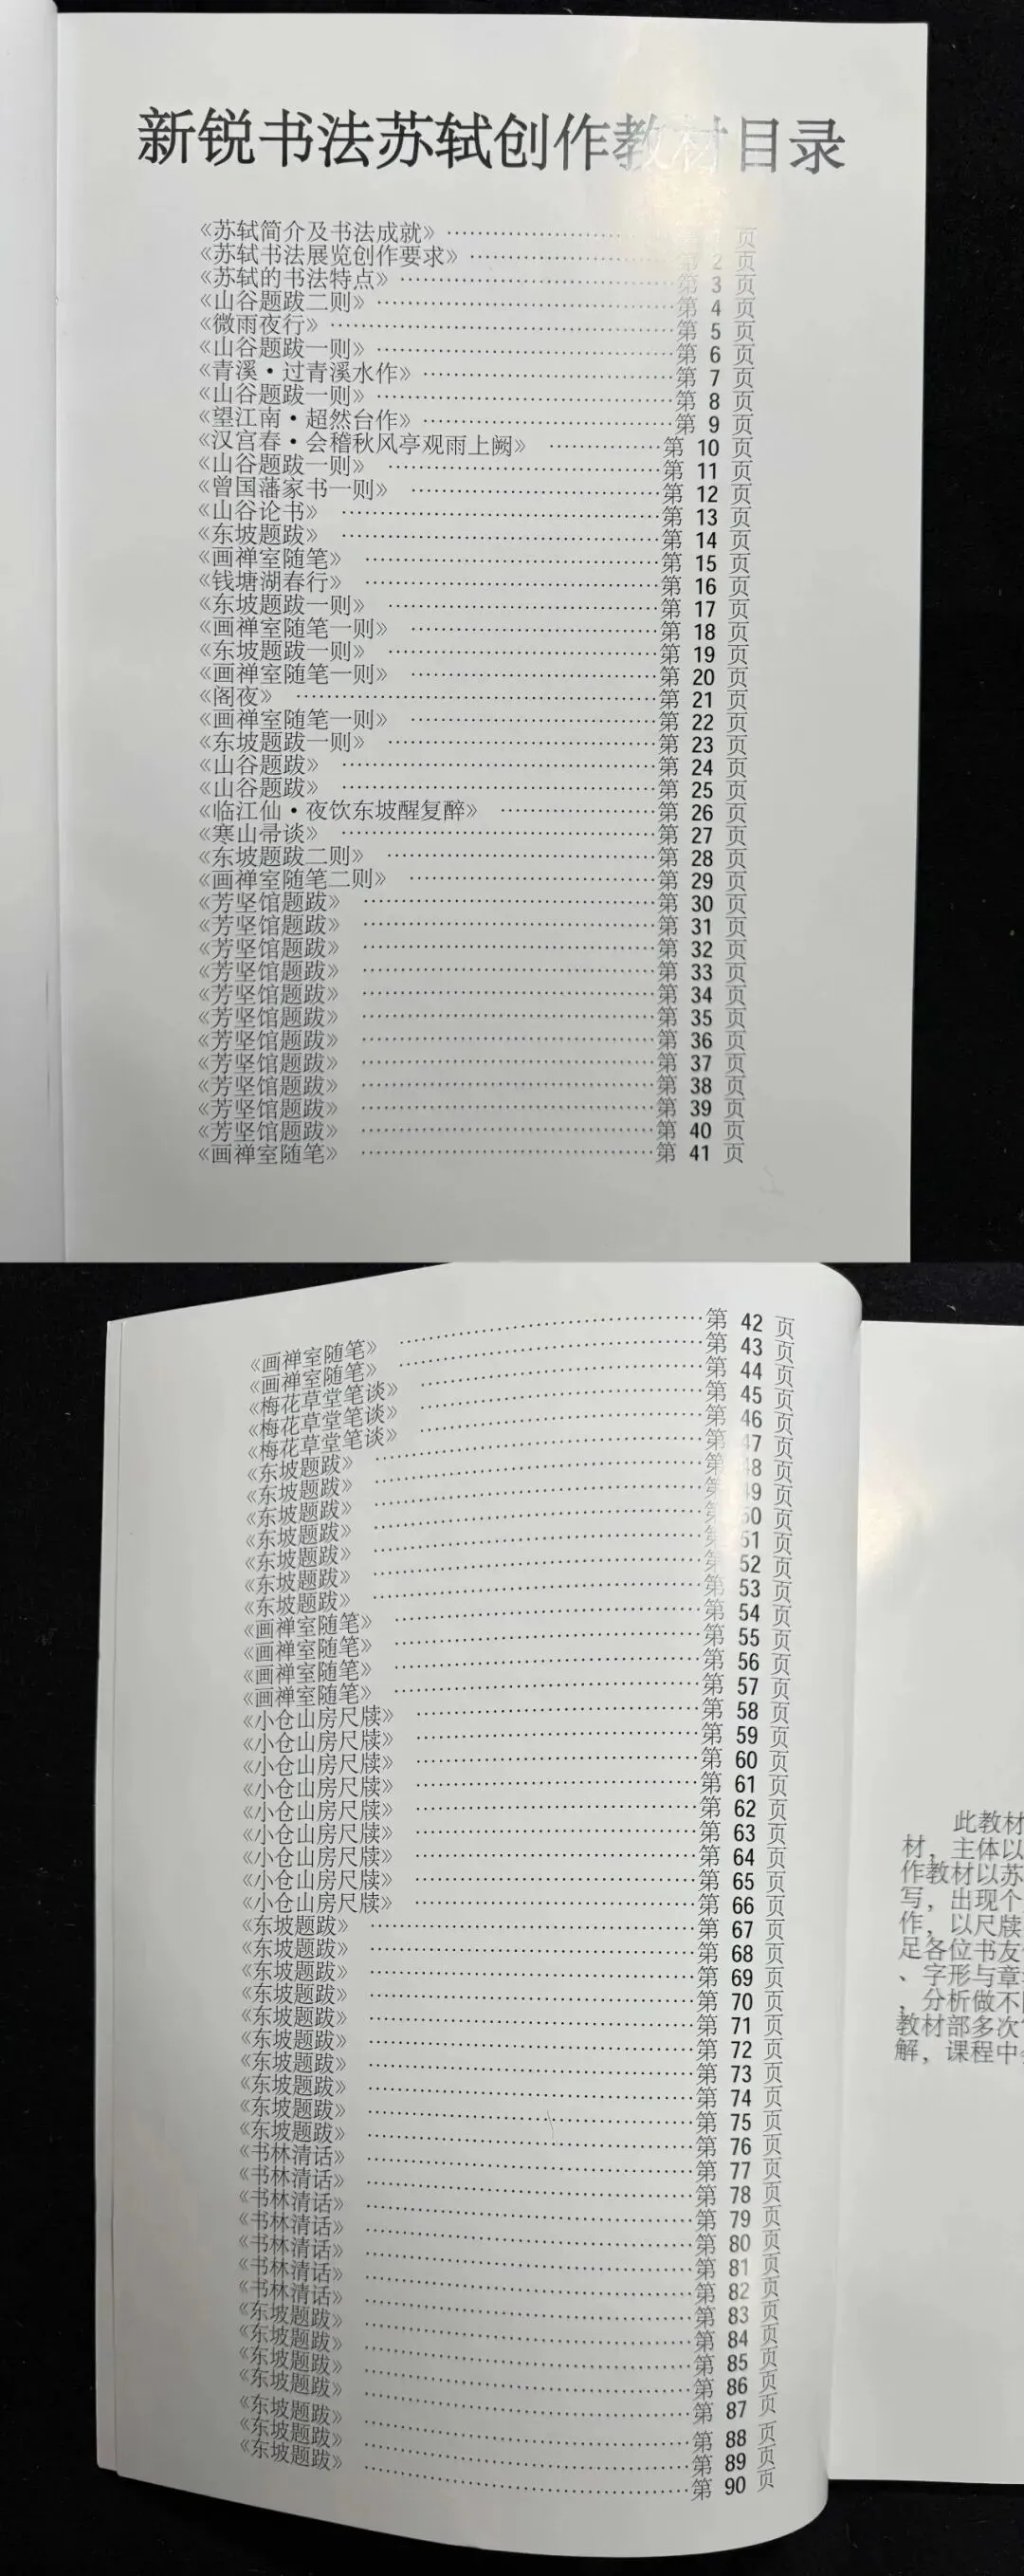 新锐书法苏轼创作教材目录
《苏轼简介及书法成就》 …………… 页
《苏轼书法展览创作要求》 …………… 第 2 页
《苏轼的书法特点》 …………… 第 3 页
《山谷题跋二则》 …………… 第 4 页
《微雨夜行》 …………… 第 5 页
《山谷题跋一则》 …………… 第 6 页
《青溪·过青溪水作》 …………… 第 7 页
《山谷题跋一则》 …………… 第 8 页
《望江南·超然台作》 …………… 第 9 页
《汉宫春·会稽秋风亭观雨上阙》 …………… 第 10 页
《山谷题跋一则》 …………… 第 11 页
《曾国藩家书一则》 …………… 第 12 页
《山谷论书》 …………… 第 13 页
《东坡题跋》 …………… 第 14 页
《画禅室随笔》 …………… 第 15 页
《钱塘湖春行》 …………… 第 16 页
《东坡题跋一则》 …………… 第 17 页
《画禅室随笔一则》 …………… 第 18 页
《东坡题跋一则》 …………… 第 19 页
《画禅室随笔一则》 …………… 第 20 页
《阁夜》 …………… 第 21 页
《画禅室随笔一则》 …………… 第 22 页
《东坡题跋一则》 …………… 第 23 页
《山谷题跋》 …………… 第 24 页
《山谷题跋》 …………… 第 25 页
《临江仙·夜饮东坡醒复醉》 …………… 第 26 页
《寒山帚谈》 …………… 第 27 页
《东坡题跋二则》 …………… 第 28 页
《画禅室随笔二则》 …………… 第 29 页
《芳坚馆题跋》 …………… 第 30 页
《芳坚馆题跋》 …………… 第 31 页
《芳坚馆题跋》 …………… 第 32 页
《芳坚馆题跋》 …………… 第 33 页
《芳坚馆题跋》 …………… 第 34 页
《芳坚馆题跋》 …………… 第 35 页
《芳坚馆题跋》 …………… 第 36 页
《芳坚馆题跋》 …………… 第 37 页
《芳坚馆题跋》 …………… 第 38 页
《芳坚馆题跋》 …………… 第 39 页
《芳坚馆题跋》 …………… 第 40 页
《画禅室随笔》 …………… 第 41 页
《画禅室随笔》 …………… 第 42 页
《画禅室随笔》 …………… 第 43 页
《梅花草堂笔谈》 …………… 第 44 页
《梅花草堂笔谈》 …………… 第 45 页
《梅花草堂笔谈》 …………… 第 46 页
《东坡题跋》 …………… 第 47 页
《东坡题跋》 …………… 第 48 页
《东坡题跋》 …………… 第 49 页
《东坡题跋》 …………… 第 50 页
《东坡题跋》 …………… 第 51 页
《东坡题跋》 …………… 第 52 页
《东坡题跋》 …………… 第 53 页
《画禅室随笔》 …………… 第 54 页
《画禅室随笔》 …………… 第 55 页
《画禅室随笔》 …………… 第 56 页
《画禅室随笔》 …………… 第 57 页
《小仓山房尺牍》 …………… 第 58 页
《小仓山房尺牍》 …………… 第 59 页
《小仓山房尺牍》 …………… 第 60 页
《小仓山房尺牍》 …………… 第 61 页
《小仓山房尺牍》 …………… 第 62 页
《小仓山房尺牍》 …………… 第 63 页
《小仓山房尺牍》 …………… 第 64 页
《小仓山房尺牍》 …………… 第 65 页
《小仓山房尺牍》 …………… 第 66 页
《东坡题跋》 …………… 第 67 页
《东坡题跋》 …………… 第 68 页
《东坡题跋》 …………… 第 69 页
《东坡题跋》 …………… 第 70 页
《东坡题跋》 …………… 第 71 页
《东坡题跋》 …………… 第 72 页
《东坡题跋》 …………… 第 73 页
《东坡题跋》 …………… 第 74 页
《东坡题跋》 …………… 第 75 页
《东坡题跋》 …………… 第 76 页
《书林清话》 …………… 第 77 页
《书林清话》 …………… 第 78 页
《书林清话》 …………… 第 79 页
《书林清话》 …………… 第 80 页
《书林清话》 …………… 第 81 页
《书林清话》 …………… 第 82 页
《书林清话》 …………… 第 83 页
《东坡题跋》 …………… 第 84 页
《东坡题跋》 …………… 第 85 页
《东坡题跋》 …………… 第 86 页
《东坡题跋》 …………… 第 87 页
《东坡题跋》 …………… 第 88 页
《东坡题跋》 …………… 第 89 页
《东坡题跋》 …………… 第 90 页
此教材
材，主体以
作教材以苏
写，出现个
作，以尺牍
足各位书友
、字形与章
，分析做不
教材部多次
解，课程中